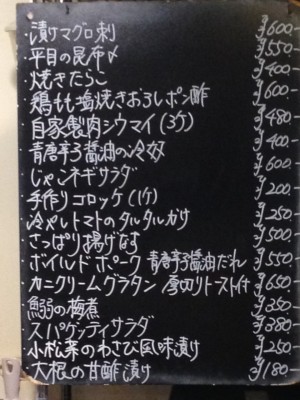 ・漬けマグロ刺 ¥600-
・平目の昆布〆 ¥550-
・焼きたらこ ¥400-
・鶏もも塩焼きおろしポン酢 ¥600-
・自家製肉シウマイ(3ケ) ¥480-
・青唐辛子醤油の冷奴 ¥400-
・じゃこネギサラダ ¥600-
・手作りコロッケ(1ケ) ¥200-
・冷やしトマトのタルタルがけ ¥250-
・さっぱり揚げなす ¥500-
・ボイルドポーク 青唐辛子醤油だれ ¥550-
・カニクリームグラタン 厚切りトースト付 ¥650-
・鰯の梅煮 ¥350-
・スパゲッティサラダ ¥380-
・小松菜のわさび風味漬け ¥250-
・大根の甘酢漬け ¥180-